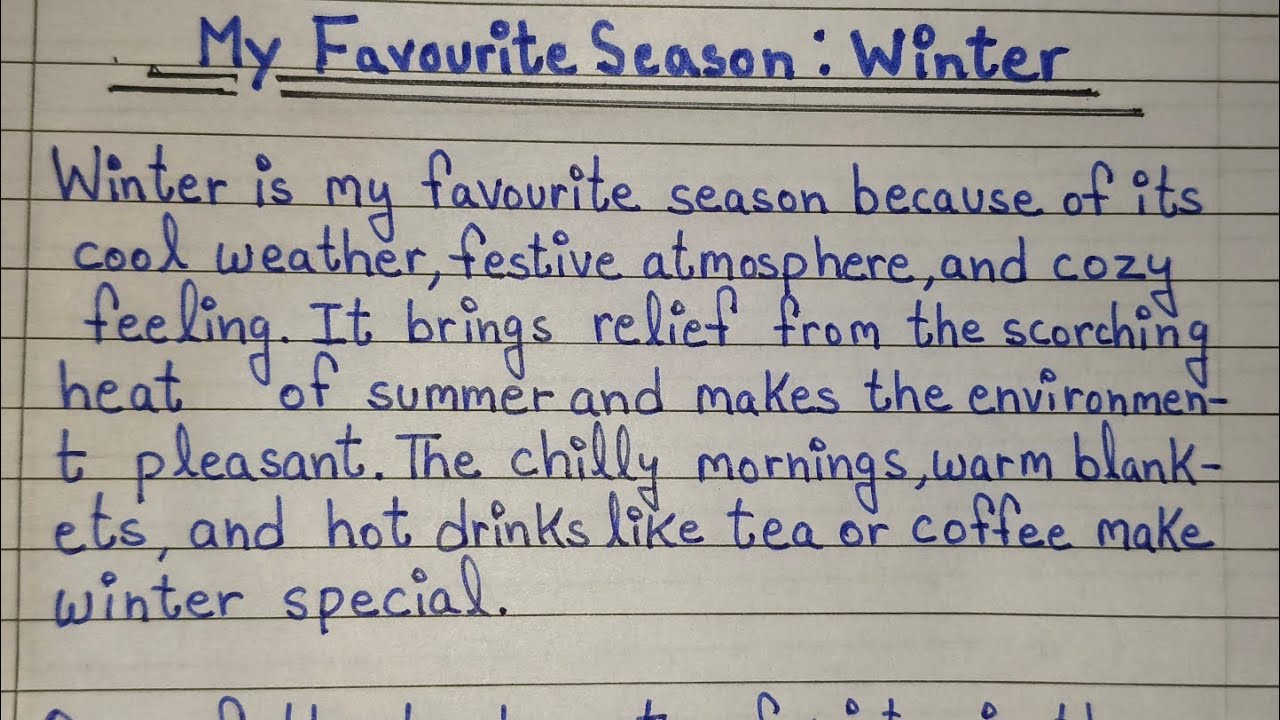 My Favourite Season: Winter
Winter is my favourite season because of its
cool weather, festive atmosphere, and cozy
feeling. It brings relief from the scorching
heat of summer and makes the environmen-
t pleasant. The chilly mornings, warm blank-
ets, and hot drinks like tea or coffee make
winter special.